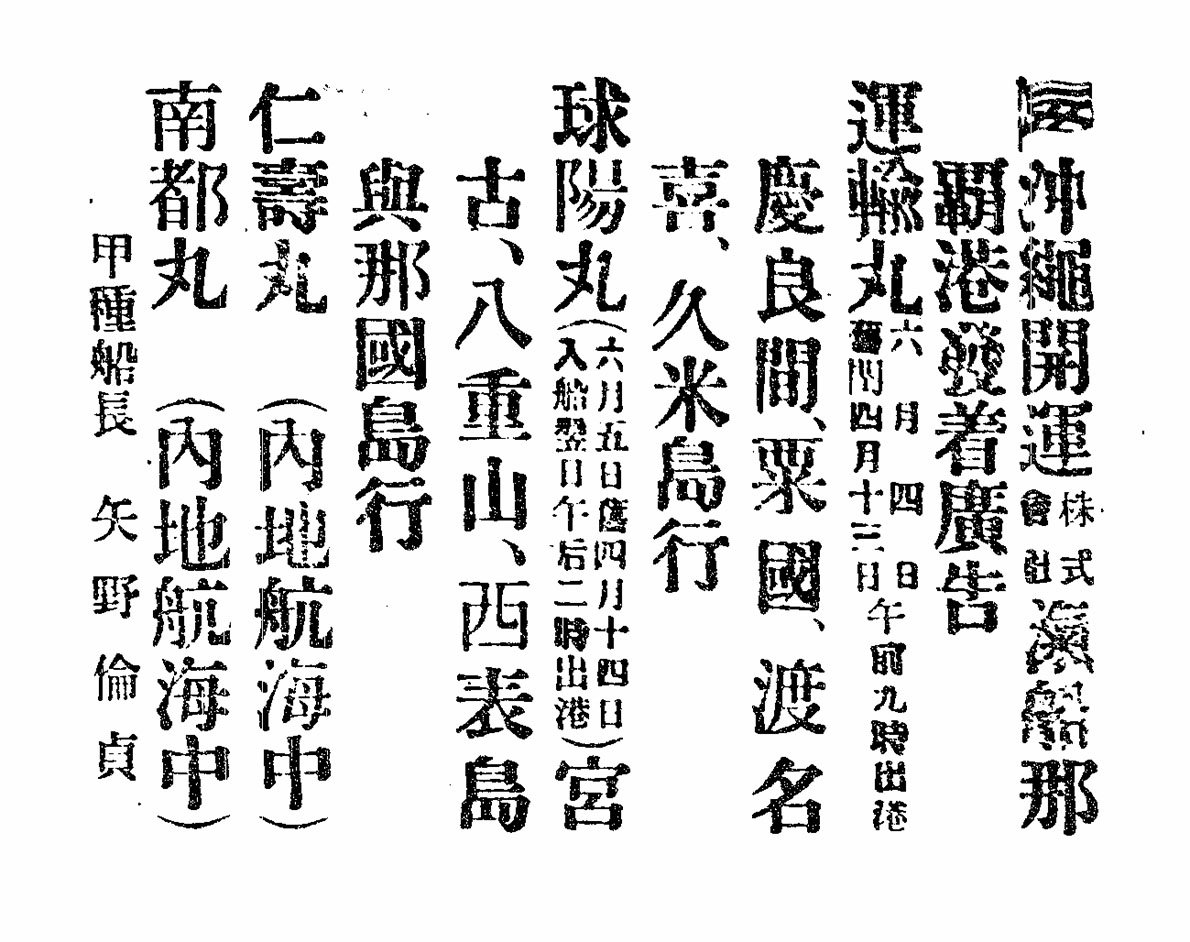 沖繩開運株式會社漁船那
覇港發着廣告
運輸丸六月四日舊四月十三日午前九時出港
慶良間、粟國、渡名
喜、久米島行
球陽丸(六月五日舊四月十四日入船翌日午后二時出港)宮
古、八重山、西表島
與那國島行
仁壽丸 (內地航海中)
南都丸 (內地航海中)
甲種船長 矢野倫貞